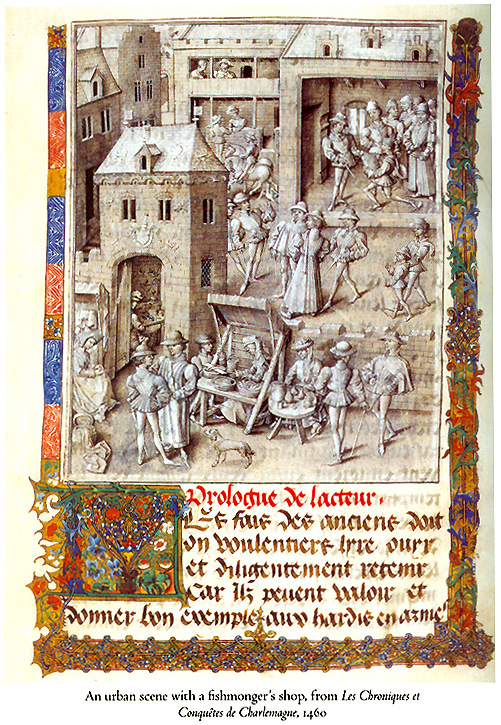 Prologue de lacteur.
Es fais des anciens doit
on voulentiers lyre. ouyr
et diligentement retenir
Car ilz peuent valoir et
donner bon exemple aux hardis en armes
An urban scene with a fishmonger's shop, from Les Chroniques et
Conquêtes de Charlemagne, 1460